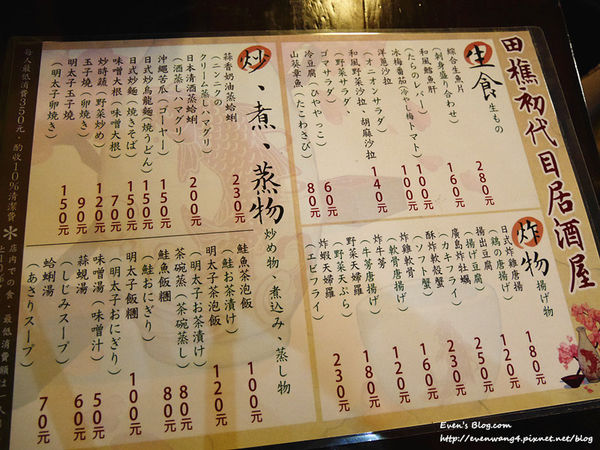 田樵初代目居酒屋
生食 生もの
綜合生魚片
(刺身盛り合わせ) 280元
和風鱈魚肝
(たらのレバー) 160元
冰梅番茄(冷やし梅トマト) 100元
洋蔥沙拉
(オニオンサラダ) 100元
和風野菜沙拉、胡麻沙拉
(野菜サラダ、
ゴマサラダ) 140元
冷豆腐(ひややっこ) 60元
山葵章魚(たこわさび) 80元
炸物 揚げ物
日式炸雞唐揚
(鶏の唐揚げ) 180元
揚出豆腐
(揚げ豆腐) 120元
廣島炸牡蠣
(カキフライ) 250元
酥炸軟殼蟹
(ソフト蟹) 230元
炸雞軟骨
(軟骨唐揚げ) 120元
炸牛蒡
(牛蒡唐揚げ) 120元
野菜天婦羅
(野菜天ぷら) 180元
炸蝦天婦羅
(エビフライ) 230元
炒、煮、蒸物 炒め物、煮込み、蒸し物
蒜香奶油蒸蛤蜊
(ニンニクの
クリーム蒸し、マグリ) 230元
日本清酒蒸蛤蜊
(酒蒸し、マグリ) 200元
沖繩苦瓜(ゴーヤー) 150元
日式炒烏龍麵(焼うどん) 150元
日式炒麵(焼きそば) 150元
味噌大根(味噌大根) 70元
炒時蔬(野菜炒め) 120元
玉子燒(卵焼き) 90元
明太子玉子燒
(明太子卵焼き) 150元
鮭魚茶泡飯
(鮭お茶漬け) 100元
明太子茶泡飯
(明太子お茶漬け) 120元
茶碗蒸(茶碗蒸し) 80元
鮭魚飯糰
(鮭おにぎり) 80元
明太子飯糰
(明太子おにぎり) 100元
味噌湯(味噌汁) 50元
蒜蜆湯
(しじみスープ) 60元
蛤蜊湯
(あさりスープ) 70元
每人最低消費350元,酌收10%清潔費 ＊店内での食、最低消費額は一人
Even's Blog.com
http://evenwang4.pixnet.net/blog